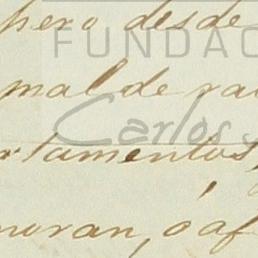 pero desde
FUNDAC
mal de
Carlos
rtamentos,
moran, ó af